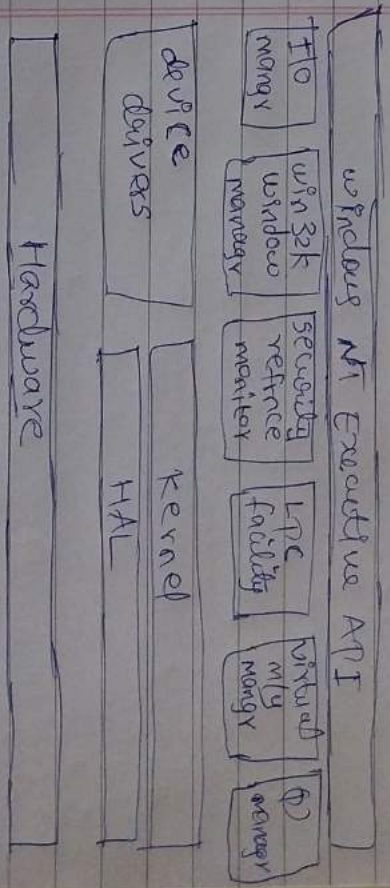 windows NT Executive API
I/O
mangr
win32k
window
managr
security
refrnce
monitor
LPC
facility
virtual
m/y
mangr
managr
device
drivers
Kernel
HAL
Hardware